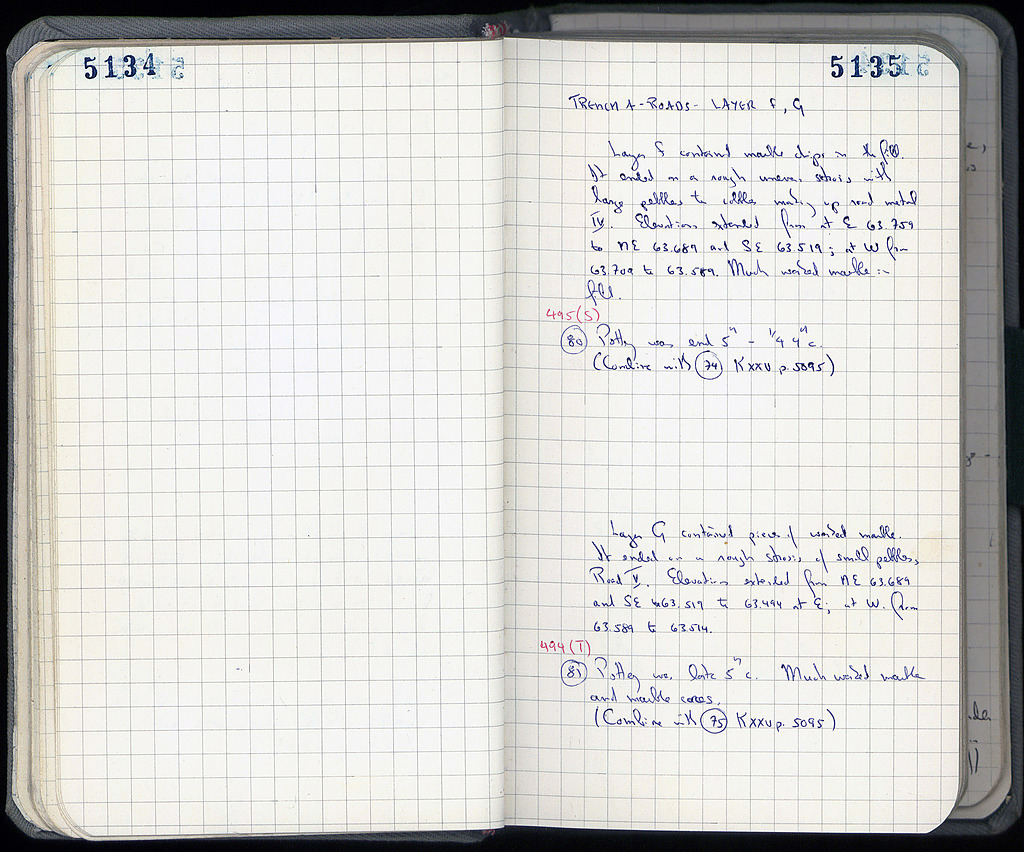 5134
5135
TRENCH A - ROADS - LAYER F, G
Layer F contained marble chips in the fill.
It ended on a rough uneven strosis with
large pebbles to cobbles making up road metal
IV. Elevations extended from at E 63.759
to NE 63.689 and SE 63.519; at W from
63.709 to 63.589. Much worked marble in
fill.
495(S)
80 Pottery was end 5th - 1/4 4th c.
(Combine with 74 KXXV p. 5095)
Layer G contained pieces of worked marble.
It ended on a rough strosis of small pebbles,
Road V. Elevations extended from NE 63.689
and SE 63.519 to 63.494 at E; at W. from
63.589 to 63.514.
494(T)
81 Pottery was late 5th c. Much worked marble
and marble cores.
(Combine with 75 KXXV p. 5095)